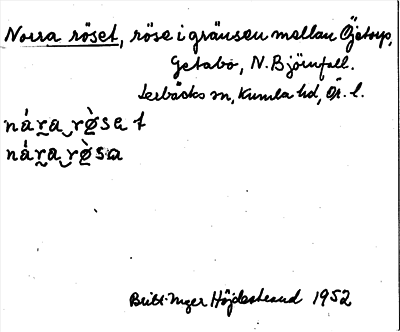 Norra röset, röse i gränsen mellan Öjetorp,
Getabo, N. Björnfall.
Lerbäcks sn, Kumla hd, Ör. l.
nár̰a‿rø̀set
nár̰a‿rø̀sa
Britt-Inger Höjdestrand 1952